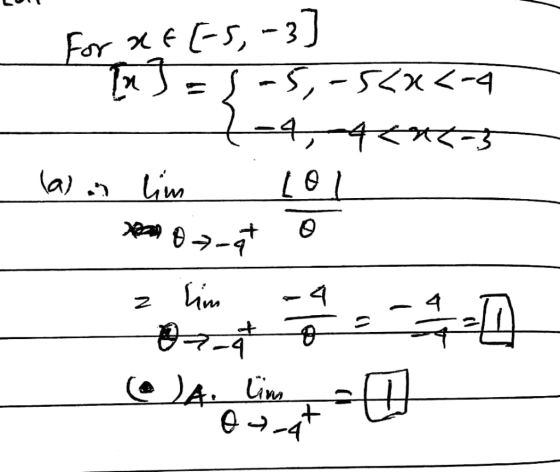 For x ∈ [-5, -3]
[x] = { -5, -5<x<-4
-4, -4<x<-3
(a) ∴ lim θ→-4⁺ ⌊θ⌋/θ
= lim θ→-4⁺ -4/θ = -4/-4 = 1
( )A. lim θ→-4⁺ = 1